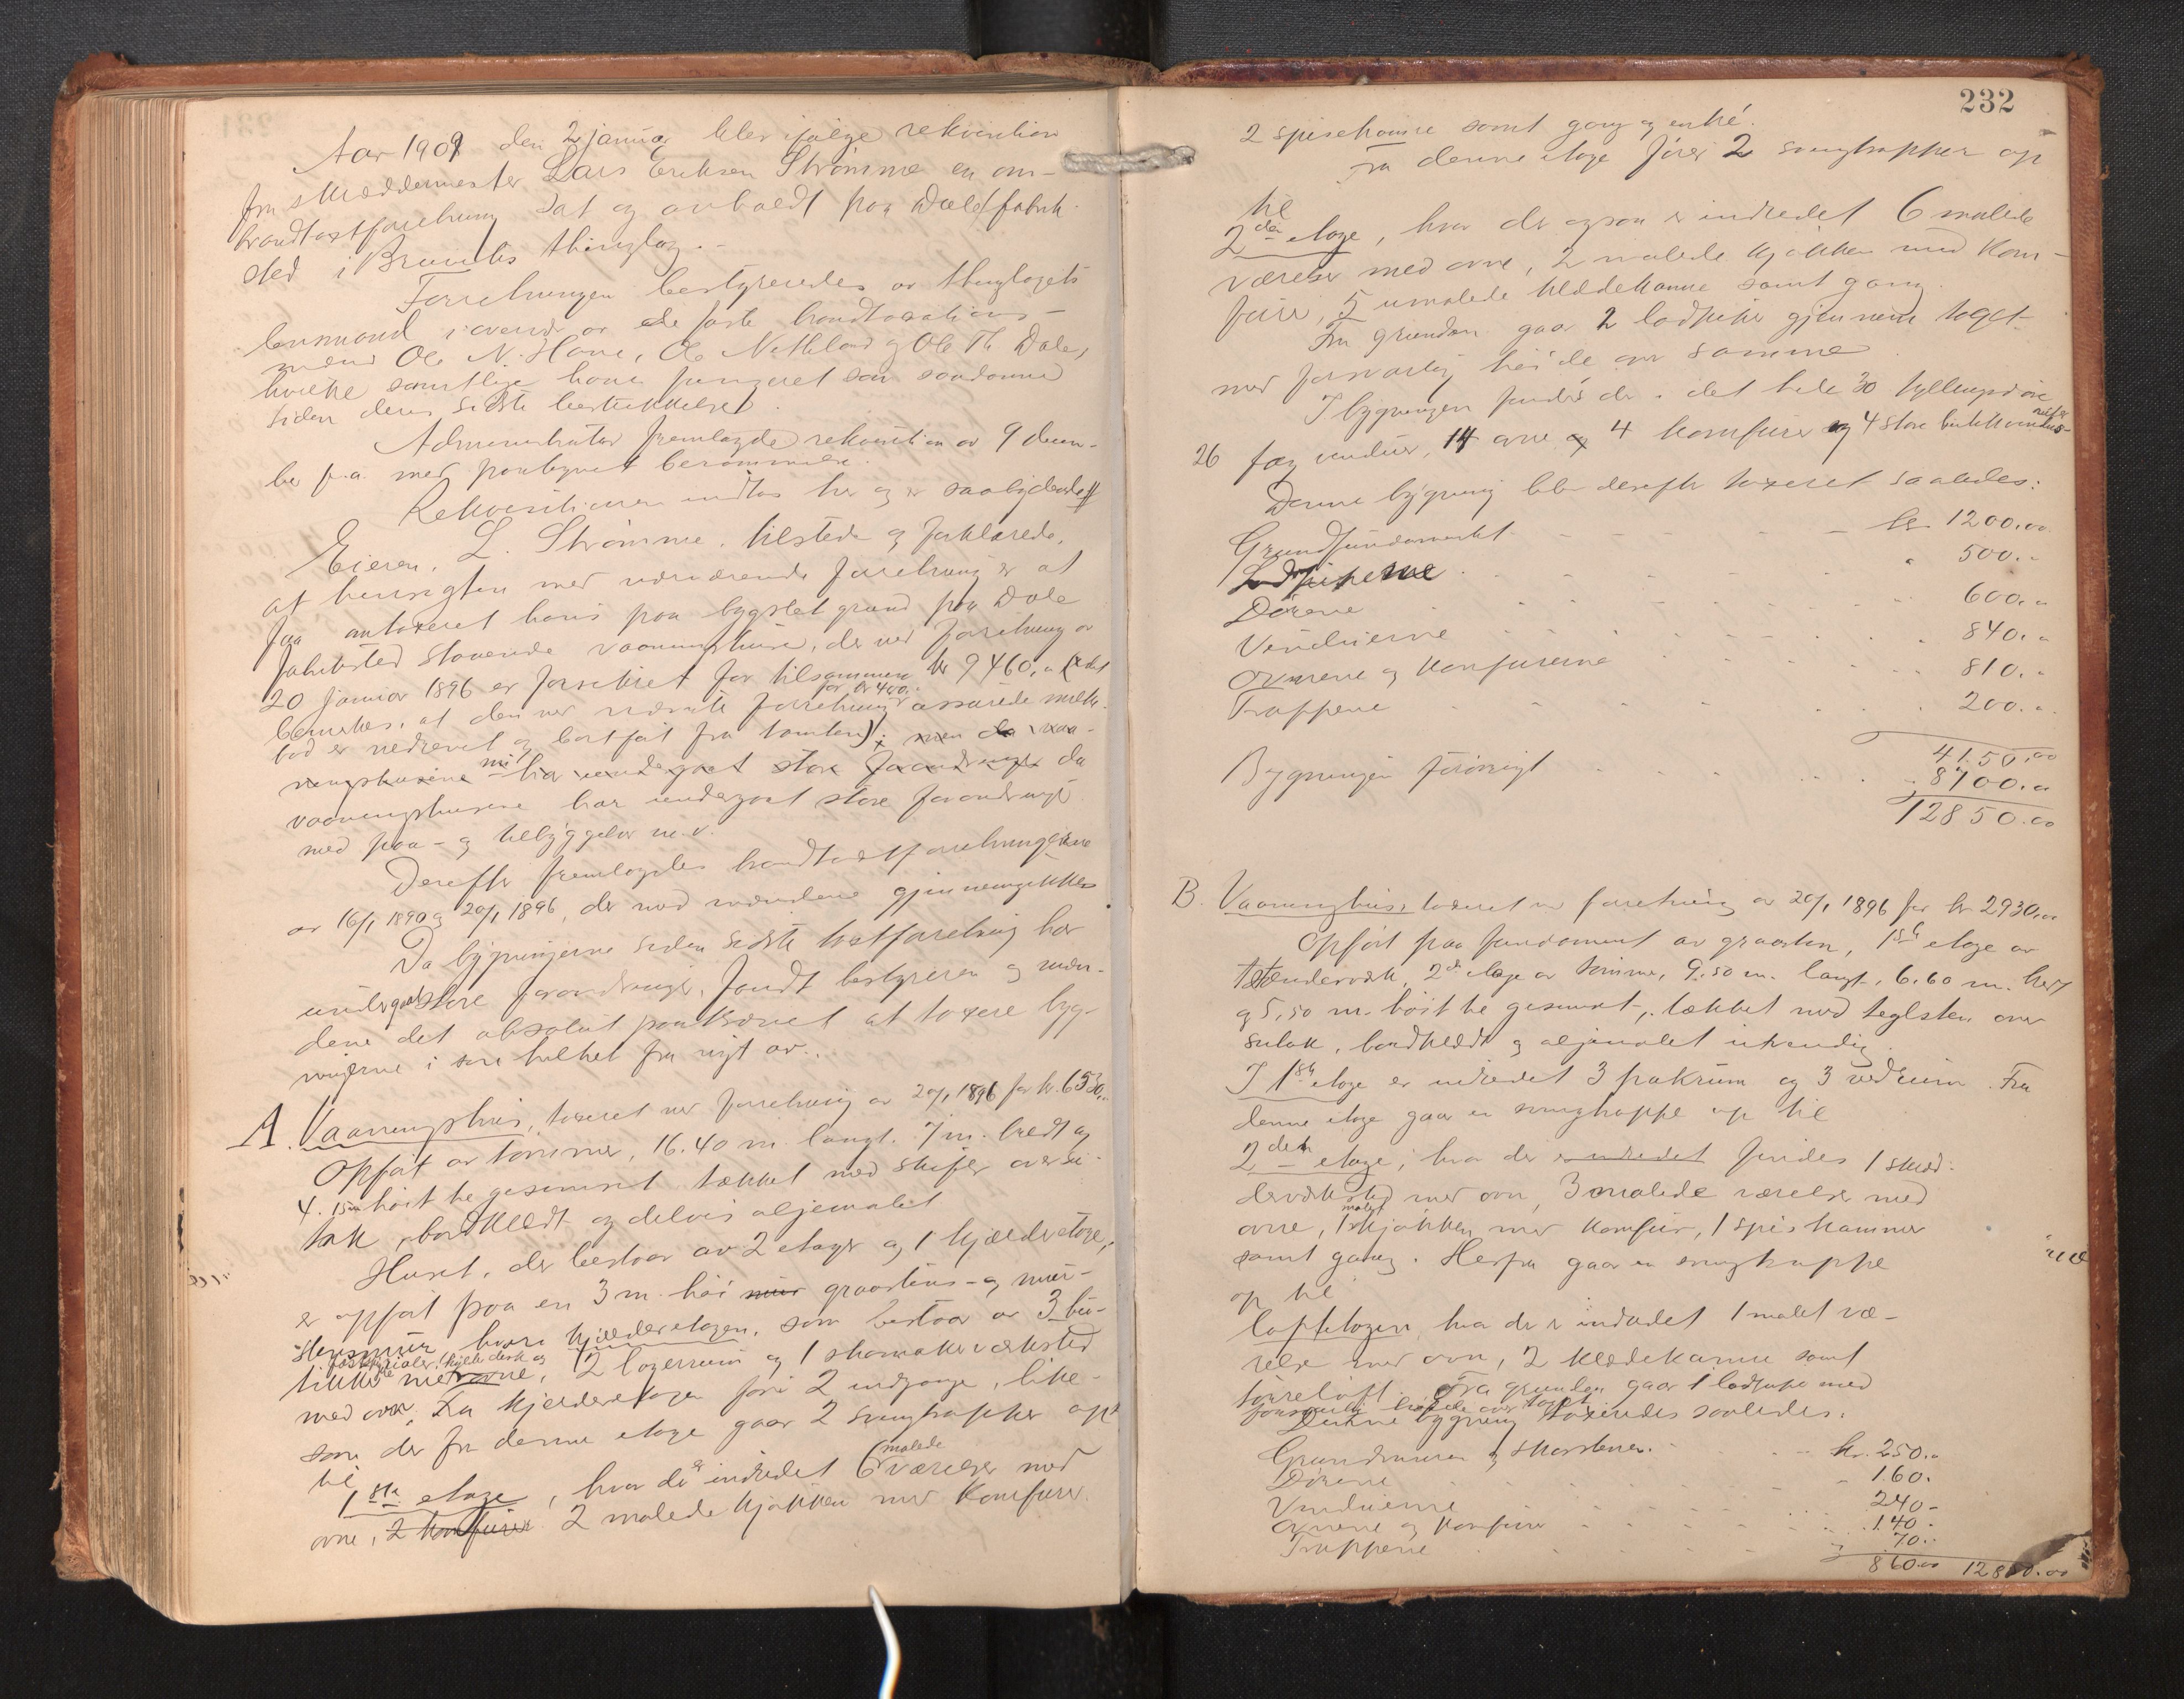 Aar 1909 den 2 januar blev ifølge rekvisition
fra skræddermester Lars Eriksen Strømme en om-
brandtaxtforretning sat og avholdt paa Dale fabrik-
sted i Bruviks thinglag.
Forretningen bestyredes av thinglagets
lensmand i overvær av de faste brandtaxations-
mænd Ole N. Hove, Ole Nethland og Ole Th Dale,
hvilke samtlige have fungeret som saadanne
siden deres sidste beskikkelse.
Administrator fremlagde rekvisition av 9 decem-
ber f.a. med paategnet berammelse.
Rekvisitionen indtas her og er saalydende #
Eieren, L. Strømme, tilstede og forklarede,
at hensigten med nærværende forretning er at
faa omtaxeret hans paa bygslet grund paa Dale
fabriksted staaende vaaningshuse, der ved forretning av
20 januar 1896 er forsikret for tilsammen kr 9460,00 (det
bemerkes, at den ved nævnte forretning for kr 400. assurede
bod er nedrevet og bortført fra tomten); men da vaa-
ningshusene har undergaat store forandringer da
vaaningshusene har undergaat store forandringer
med paa- og tilbyggelse m.v.
Derefter fremlagdes brandtaxtforretningerne
av 16/1 1890 og 20/1 1896, der med mændene gjennemgikkes
Da bygningerne siden sidste taxtforretning har
undergaat store forandringer, fandt bestyreren og mæn-
dene det absolut paakrævet at taxere byg-
ningerne i sin helhet fra nyt av.
A. Vaaningshus, taxeret ved forretning av 20/1 1896 for kr. 6530,00
Opført av tømmer, 16.40 m. langt, 7 m. bredt og
4.15 m høit til gesimset tækket med skifer over su-
tak, bordklædt og delvis oljemalet
Huset, der bestaar av 2 etager og 1 kjælderetage,
er opført paa en 3 m. høi mur graastens- og mur-
stensmur hvori kjælderetagen, som bestaar av 3 bu-
tikker med ovne, 2 lagerrum og 1 skomakerverksted
med ovn. Fra kjælderetagen fører 2 indgange, like-
som der fra denne etage gaar 2 svingtrapper op
til
1ste etage, hvor der er indredet 6 malede værelser med
ovne, 2 komfurer 2 malede kjøkken med komfurer
232
2 spisekamre samt gang og entré.
Fra denne etage fører 2 svingtrapper op
til
2den etage, hvor der ogsaa er indredet 6 malede
værelser med ovne, 2 malede kjøkken med kom-
furer, 5 umalede klædekamre samt gang.
Fra grunden gaar 2 ladpiper gjennem taget
med forsvarlig høide over samme
I bygningen findes der i det hele 30 fyldingsdøre
26 fag vinduer, 14 ovne og 4 komfurer og 4 store butikvinduer
Denne bygning blev derefter taxeret saaledes:
Grundfundamentet - - - kr 1200.00
Ladpiperne . . . " 500. "
Dørene . . . 600. "
Vinduerne . . . 840. "
Ovnene og Komfurerne . . . 810. "
Trapperne . . . 200. "
4150.00
Bygningen forøvrigt . . . 8700. "
12850.00
B. Vaaningshus, taxeret ved forretning av 20/1 1896 for kr 2930,00
Opført paa fundament av graasten, 1ste etage av
stenderverk, 2den etage av tømmer, 9.50 m. langt, 6.60 m. bredt
og 5,50 m. høit til gesimset, tækket med teglsten over
sutak, bordklædt og oljemalet utvendig.
I 1ste etage er indredet 3 pakrum og 3 vedrum. Fra
denne etage gaar en svingtrappe op til
2den etage, hvor der er indredet findes 1 skræd-
derverksted med ovn, 3 malede værelser med
ovne, 1 malet kjøkken med komfur, 1 spiskammer
samt gang. Herfra gaar en svingtrappe
op til
loftetagen, hvor der er indredet 1 malet væ-
relse med ovn, 2 klædekamre samt
tørreloft. Fra grunden gaar 1 ladpipe med
forsvarlig høide over taget
Denne bygning taxeredes saaledes:
Grundmuren og skorstenen . . . kr. 250.00
Dørene . . . 160.
Vinduerne . . . 240-
Ovnene og Komfurer . . . 140.
Trapperne . . . 70.
860.00 12850.00